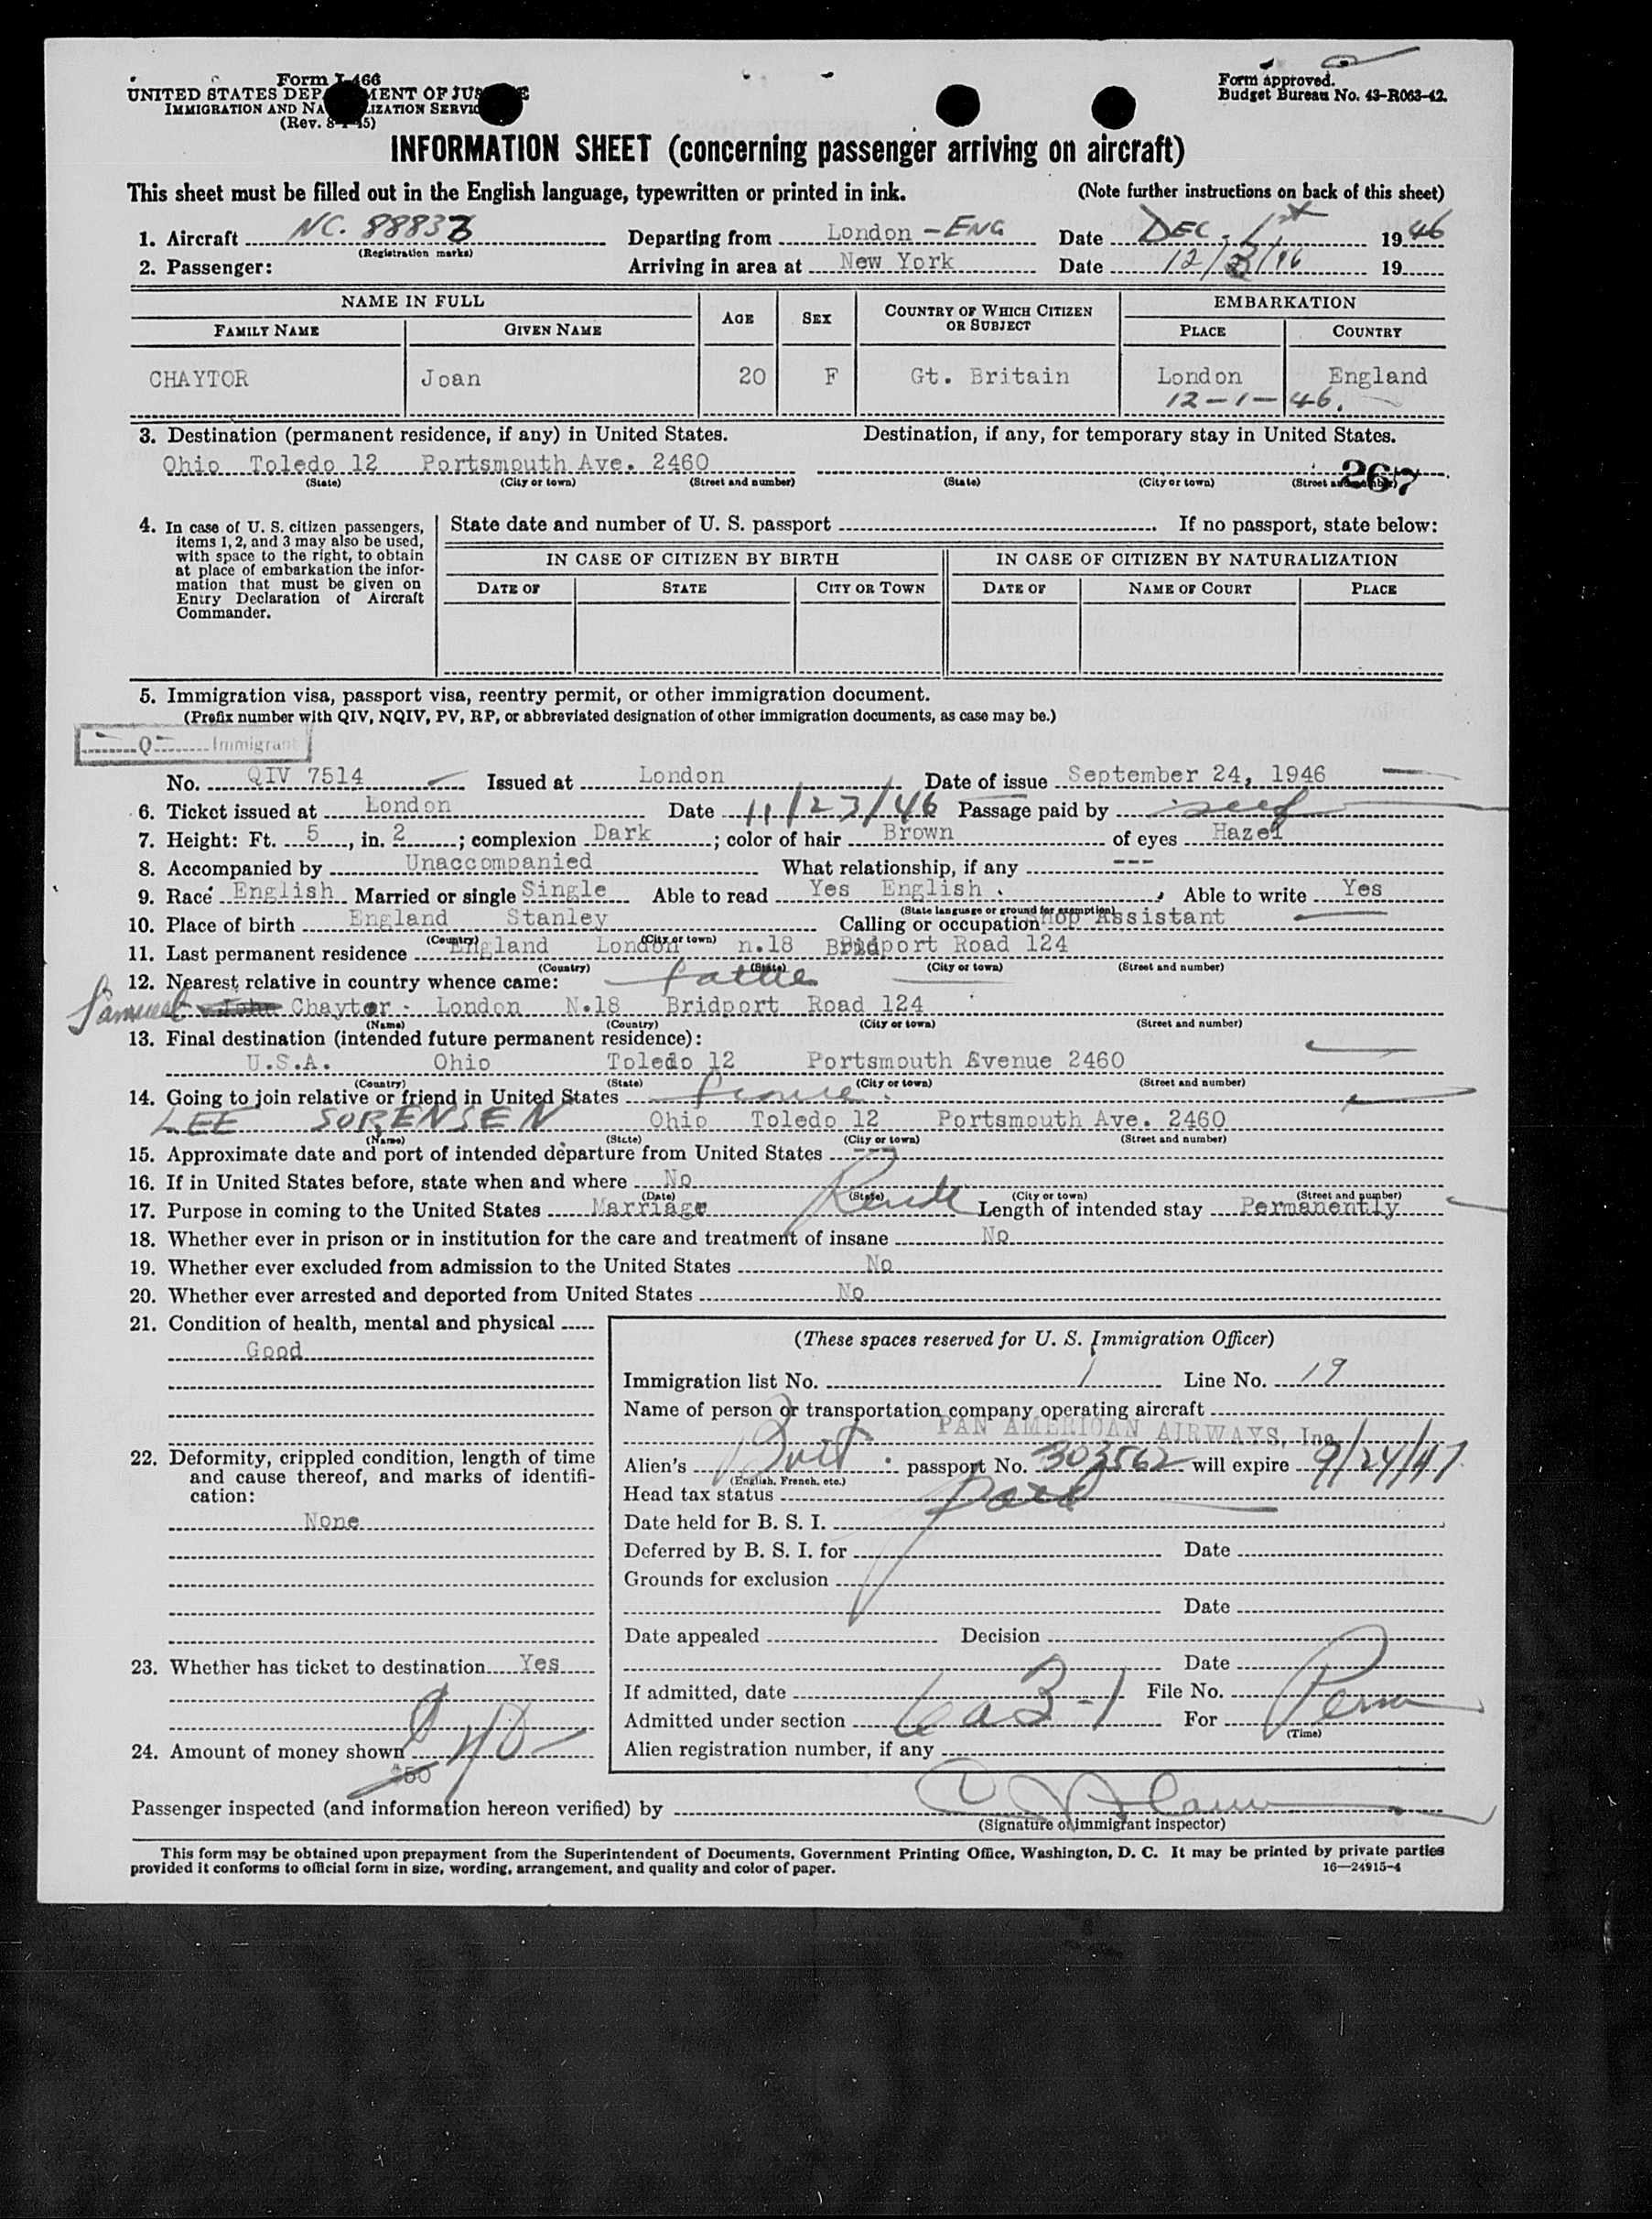 Form I-466
UNITED STATES DEPARTMENT OF JUSTICE
IMMIGRATION AND NATURALIZATION SERVICE
(Rev. 8-1-45)
Form approved.
Budget Bureau No. 43-R063-42.
INFORMATION SHEET (concerning passenger arriving on aircraft)
This sheet must be filled out in the English language, typewritten or printed in ink. (Note further instructions on back of this sheet)
1. Aircraft NC. 88833 Departing from London - ENG Date DEC. 1st 1946
(Registration marks)
2. Passenger: Arriving in area at New York Date 12/2/46 19
NAME IN FULL AGE SEX COUNTRY OF WHICH CITIZEN OR SUBJECT EMBARKATION
FAMILY NAME GIVEN NAME PLACE COUNTRY
CHAYTOR Joan 20 F Gt. Britain London England
12-1-46.
3. Destination (permanent residence, if any) in United States. Destination, if any, for temporary stay in United States.
Ohio Toledo 12 Portsmouth Ave. 2460 267
(State) (City or town) (Street and number) (State) (City or town) (Street and number)
4. In case of U. S. citizen passengers, items 1, 2, and 3 may also be used, with space to the right, to obtain at place of embarkation the information that must be given on Entry Declaration of Aircraft Commander.
State date and number of U. S. passport If no passport, state below:
IN CASE OF CITIZEN BY BIRTH IN CASE OF CITIZEN BY NATURALIZATION
DATE OF STATE CITY OR TOWN DATE OF NAME OF COURT PLACE
5. Immigration visa, passport visa, reentry permit, or other immigration document.
(Prefix number with QIV, NQIV, PV, RP, or abbreviated designation of other immigration documents, as case may be.)
Q Immigrant
No. QIV 7514 Issued at London Date of issue September 24, 1946
6. Ticket issued at London Date 11/23/46 Passage paid by self
7. Height: Ft. 5, in. 2; complexion Dark; color of hair Brown of eyes Hazel
8. Accompanied by Unaccompanied What relationship, if any ---
9. Race English Married or single Single Able to read Yes English, Able to write Yes
(State language or ground for exemption)
10. Place of birth England Stanley Calling or occupation Shop Assistant
(Country) (City or town)
11. Last permanent residence England London n.18 Bridport Road 124
(Country) (State) (City or town) (Street and number)
12. Nearest relative in country whence came: father
Samuel John Chaytor - London N.18 Bridport Road 124
(Name) (Country) (City or town) (Street and number)
13. Final destination (intended future permanent residence):
U.S.A. Ohio Toledo 12 Portsmouth Avenue 2460
(Country) (State) (City or town) (Street and number)
14. Going to join relative or friend in United States fiance
LEE SORENSEN Ohio Toledo 12 Portsmouth Ave. 2460
(Name) (State) (City or town) (Street and number)
15. Approximate date and port of intended departure from United States ---
16. If in United States before, state when and where No
(Date) (State) (City or town) (Street and number)
17. Purpose in coming to the United States Marriage Reside Length of intended stay Permanently
18. Whether ever in prison or in institution for the care and treatment of insane No
19. Whether ever excluded from admission to the United States No
20. Whether ever arrested and deported from United States No
21. Condition of health, mental and physical
Good
22. Deformity, crippled condition, length of time and cause thereof, and marks of identification:
None
23. Whether has ticket to destination Yes
24. Amount of money shown $ 40
$50
(These spaces reserved for U. S. Immigration Officer)
Immigration list No. 1 Line No. 19
Name of person or transportation company operating aircraft
PAN AMERICAN AIRWAYS, Inc.
Alien's Brit. passport No. 303562 will expire 9/24/47
(English, French, etc.)
Head tax status paid
Date held for B. S. I.
Deferred by B. S. I. for Date
Grounds for exclusion
Date
Date appealed Decision
Date
If admitted, date File No.
Admitted under section 6a3-1 For Perm
(Time)
Alien registration number, if any
Passenger inspected (and information hereon verified) by
(Signature of immigrant inspector)
This form may be obtained upon prepayment from the Superintendent of Documents, Government Printing Office, Washington, D. C. It may be printed by private parties
provided it conforms to official form in size, wording, arrangement, and quality and color of paper. 16—24915-4